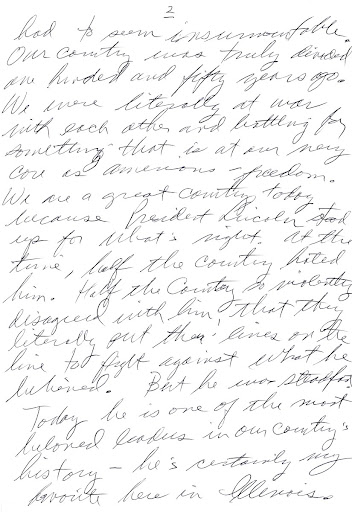 2
had to seem insurmountable.
Our country was truly divided
one hundred and fifty years ago.
We were literally at war
with each other and battling for
something that is at our very
core as americans – freedom.
We are a great country today
because President Lincoln stood
up for what's right. At the
time, half the country hated
him. Half the country so violently
disagreed with him that they
literally put their lives on the
line to fight against what he
believed. But he was steadfast.
Today he is one of the most
beloved leaders in our country's
history – he's certainly my
favorite here in Illinois.